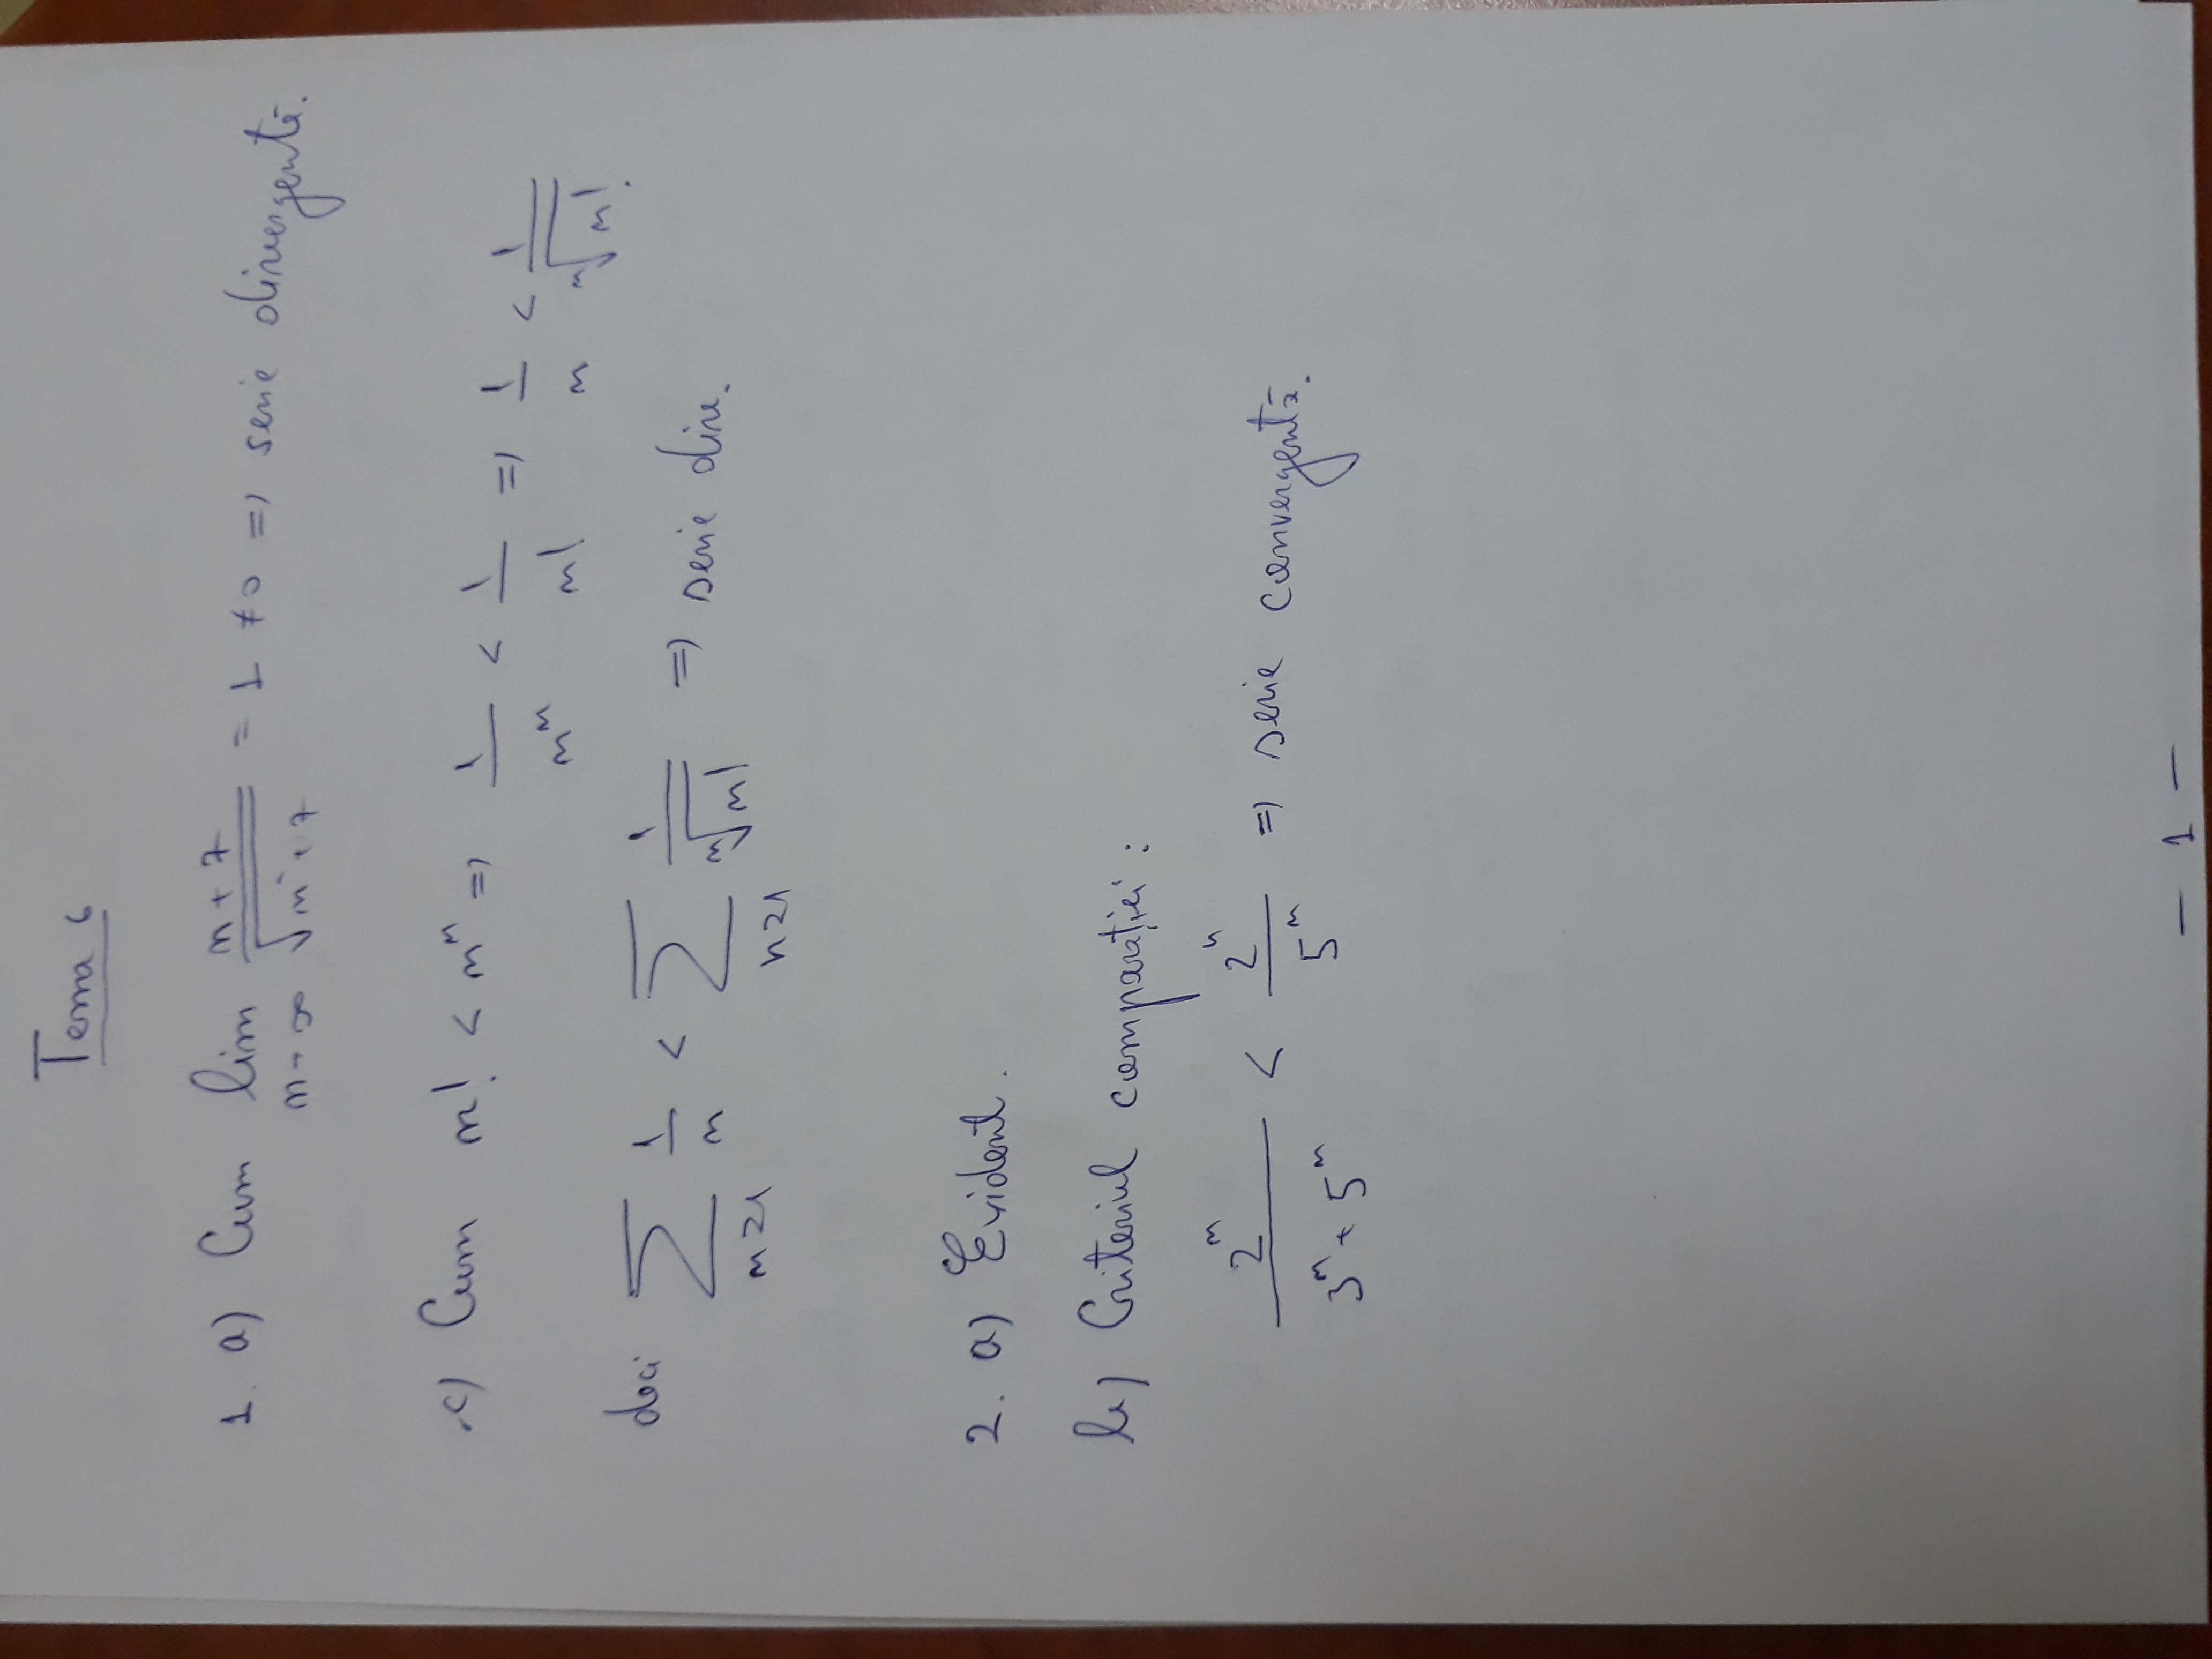 Tema 6
1. a) Cum lim n→∞ (n+7)/√(n²+7) = 1 ≠ 0 => serie divergentă.
c) Cum n! < nⁿ => 1/nⁿ < 1/n! => 1/n < 1/ⁿ√n!
deci ∑ n≥1 1/n < ∑ n≥1 1/ⁿ√n! => serie div.
2. a) Evident.
b) Criteriul comparației:
2ⁿ/(3ⁿ+5ⁿ) < 2ⁿ/5ⁿ => serie convergentă.
— 1 —